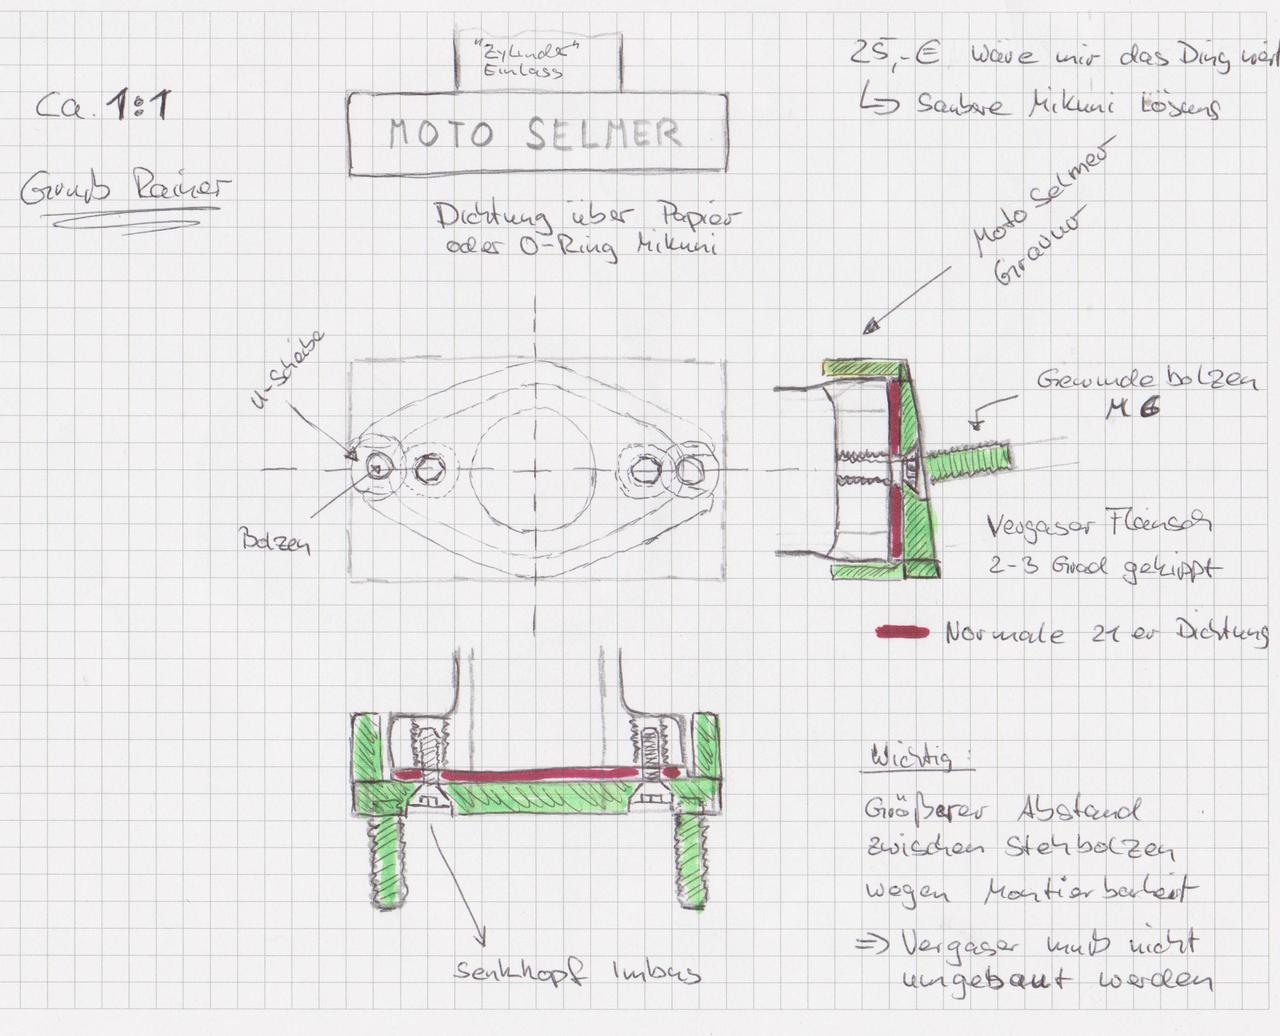 "Zylinder"
Einlass
25,-€ wäre mir das Ding wert
↳ Saubere Mikuni Lösung
Ca. 1:1
MOTO SELMER
Gruß Rainer
Dichtung über Papier
oder O-Ring Mikuni
Moto Selmer
Gravur
U-Scheibe
Gewindebolzen
M6
Bolzen
Vergaser Flansch
2-3 Grad gekippt
Normale 21er Dichtung
Wichtig:
Größerer Abstand
zwischen Stehbolzen
wegen Montierbarkeit
⇒ Vergaser muß nicht
umgebaut werden
Senkkopf Imbus